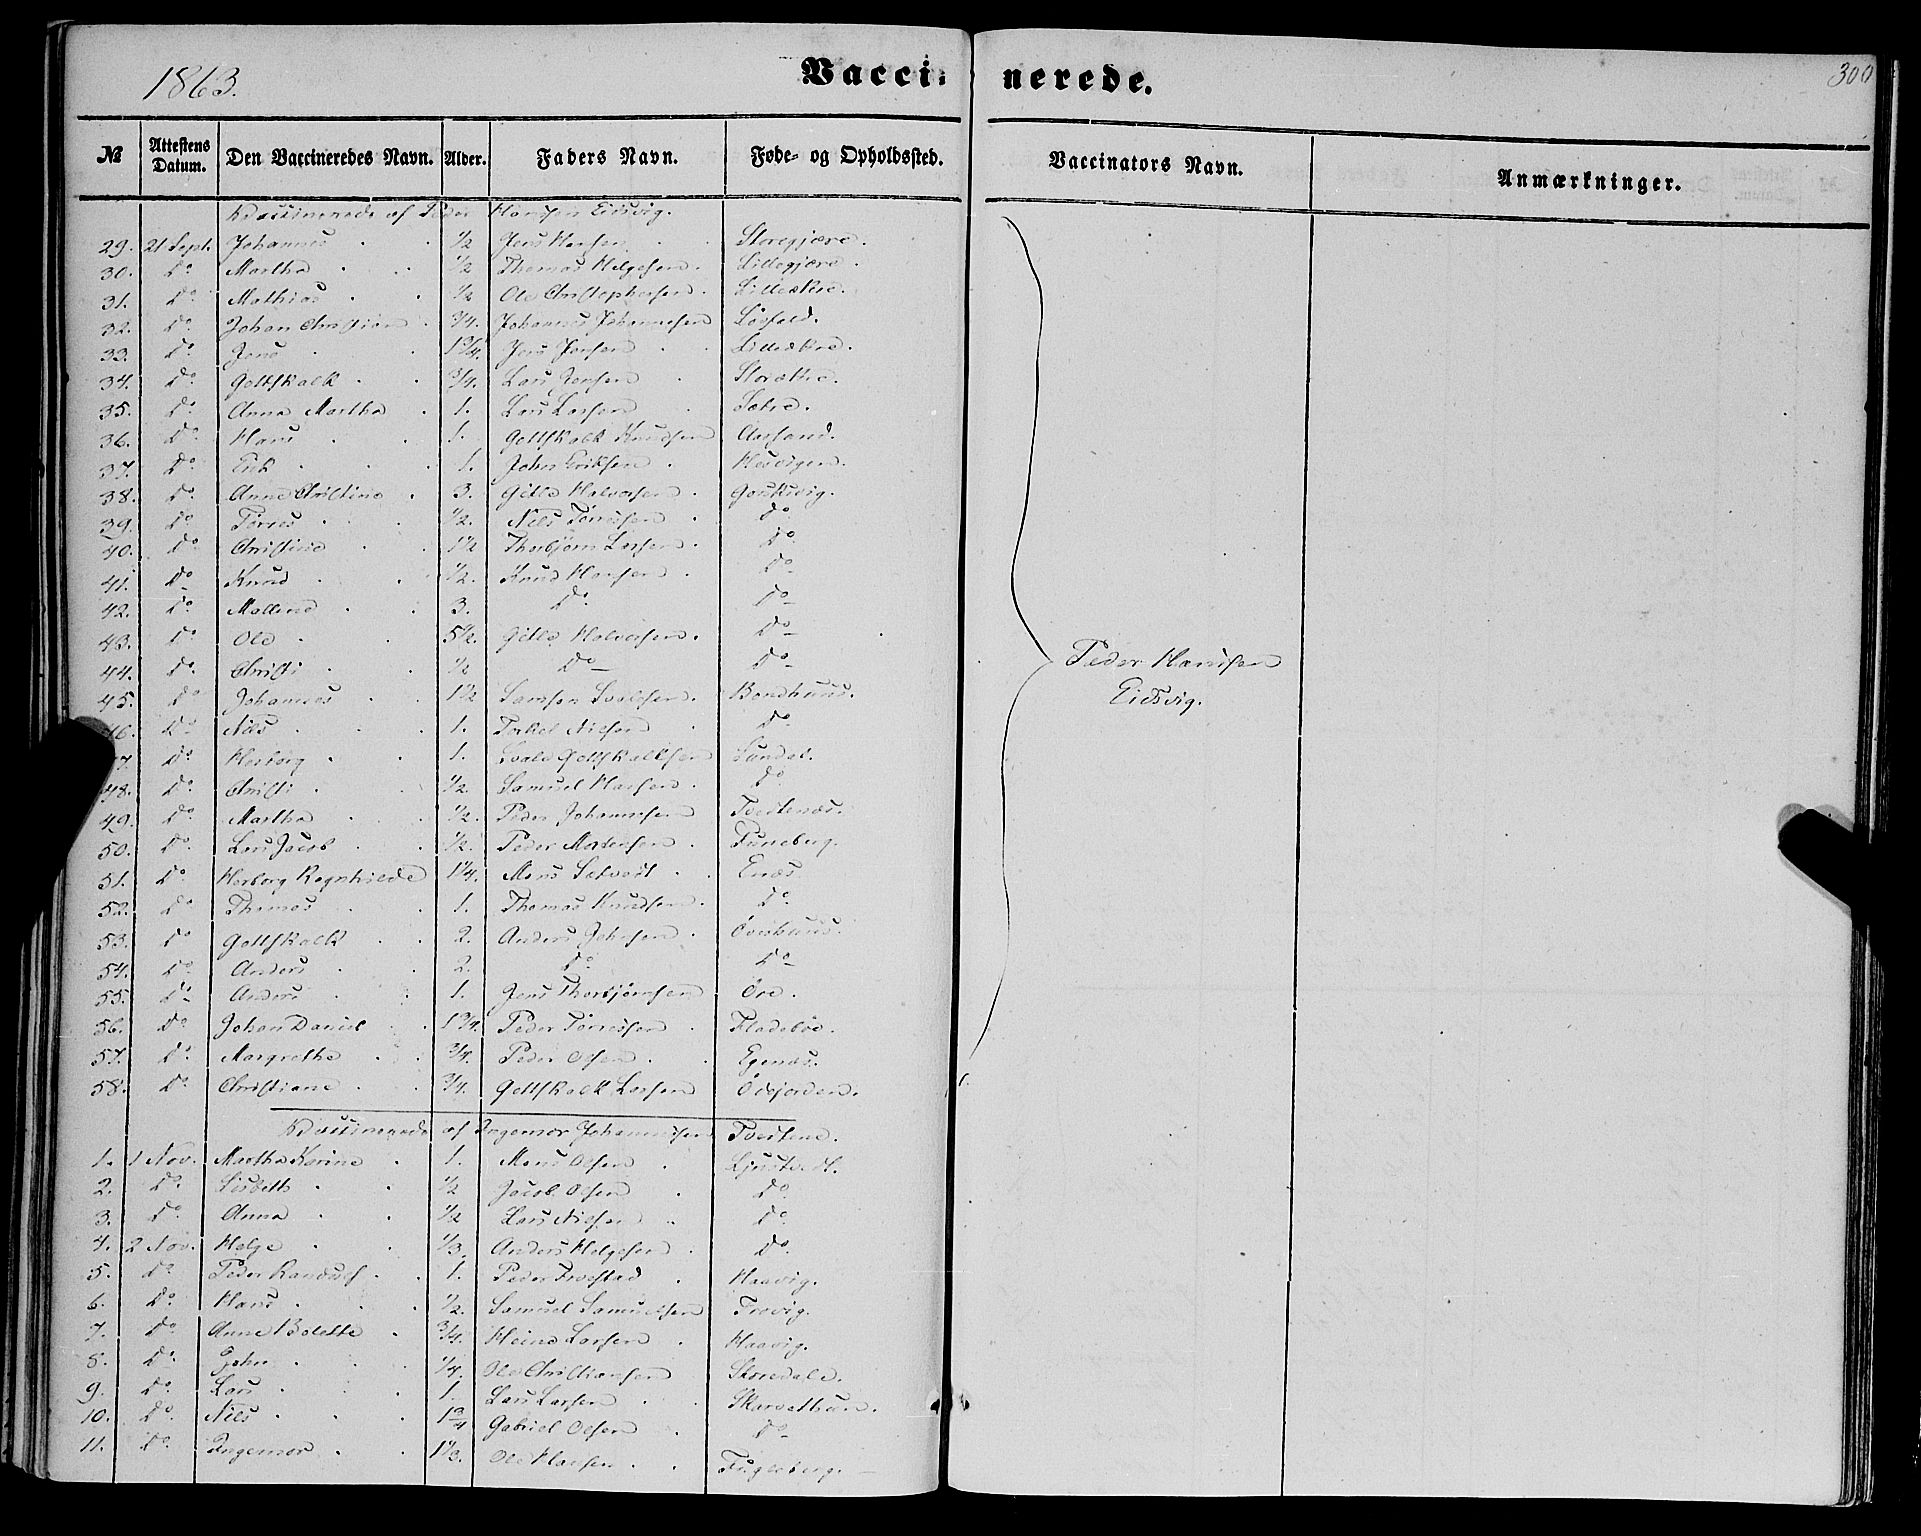 1863.
Vaccinerede.
300
№ Attestens Datum. Den Vaccineredes Navn. Alder. Faders Navn. Føde- og Opholdssted. Vaccinators Navn. Anmærkninger.
Vaccinerede af Peder Hansen Eidsvig.
29. 21 Sept. Johannes 1/2 Jens Hansen Storegjære.
30. Do Martha 1/2 Thomas Helgesen. Lillegjære.
31. Do Mathias 1/2 Ole Christophersen. Lilleækre.
32. Do Johan Christian 3/4. Johannes Johannesen
33. Do Jens 1 3/4. Jens Jensen Lilleækre.
34. Do Gottskalk 3/4. Lars Jensen Storækre.
35. Do Anna Martha 1. Lars Larsen
36. Do Hans 1. Gottskalk Knudsen
37. Do Erik 1. John Eriksen
38. Do Anne Christine 3. Gitle Halvorsen. Gouksvig.
39. Do Tørres 1/2. Nils Tørressen Do
40. Do Christine 1 1/2 Thorbjørn Larsen. Do
41. Do Knud 1/2. Knud Hansen. Do
42. Do Mallene 3. Do Do
43. Do Ole 5 1/2. Gitle Halvorsen. Do
44. Do Christi 1/2 Do Do
45. Do Johannes 1 1/2 Samson Svalesen. Bondhuus.
46. Do Nils 1. Torkel Nilsen Do
47. Do Herborg 1. Svale Gottskalksen Sundal.
48. Do Christi 1/2 Samuel Hansen. Do
49. Do Martha 1/2. Peder Johannesen Tveitenæs.
50. Do Lars Jacob 1/2. Peder Matersen.
51. Do Herborg Regnhilde 1 1/4. Mons Enæs
52. Do Thomas 1. Thomas Knudsen. Do
53. Do Gottskalk 2. Anders Johnsen Øvrehuus.
54. Do Anders 2. Do Do
55. Do Anders 1. Jens Thorbjørnsen Øre.
56. Do Johan Daniel 1 3/4. Peder Tørressen Fladebøe.
57. Do Margrethe 3/4. Peder Olsen. Egenæs.
58. Do Christiane 3/4. Gottskalk Larsen Ødejorden.
Peder Hansen
Eidsvig.
Vaccinerede af Ingemor Johannesen Tveitene.
1. 1 Nov. Martha Karine 1. Mons Olsen
2. Do Lisbeth 1/2 Jacob Olsen Do
3. Do Anna 1/2 Lars Nilsen Do
4. 2 Nov. Helge 1/3. Anders Helgesen Do
5. Do Peder 1. Peder Haavig.
6. Do Hans 1/2. Samuel Samuelsen Trovig.
7. Do Anne Bolette 3/4. Heine Larsen Haavig.
8. Do John 1/4. Ole Christiansen
9. Do Lars 1. Lars Larsen
10. Do Nils 1 3/4 Gabriel Olsen Do
11. Do Ingemor 1 1/3. Ole Hansen Fugleberg.